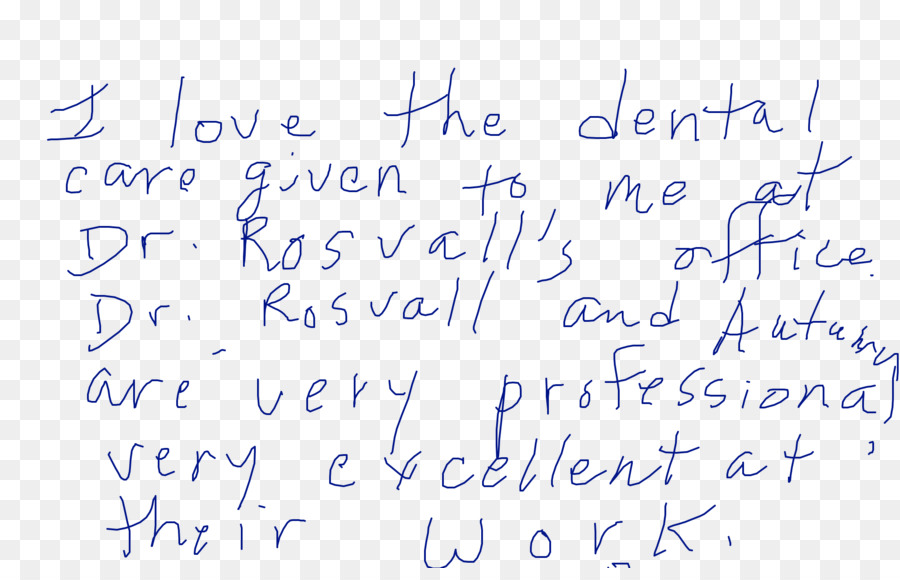 I love the dental
care given to me at
Dr. Rosvall's office.
Dr. Rosvall and Autumn
are very professional,
very excellent at
their work.